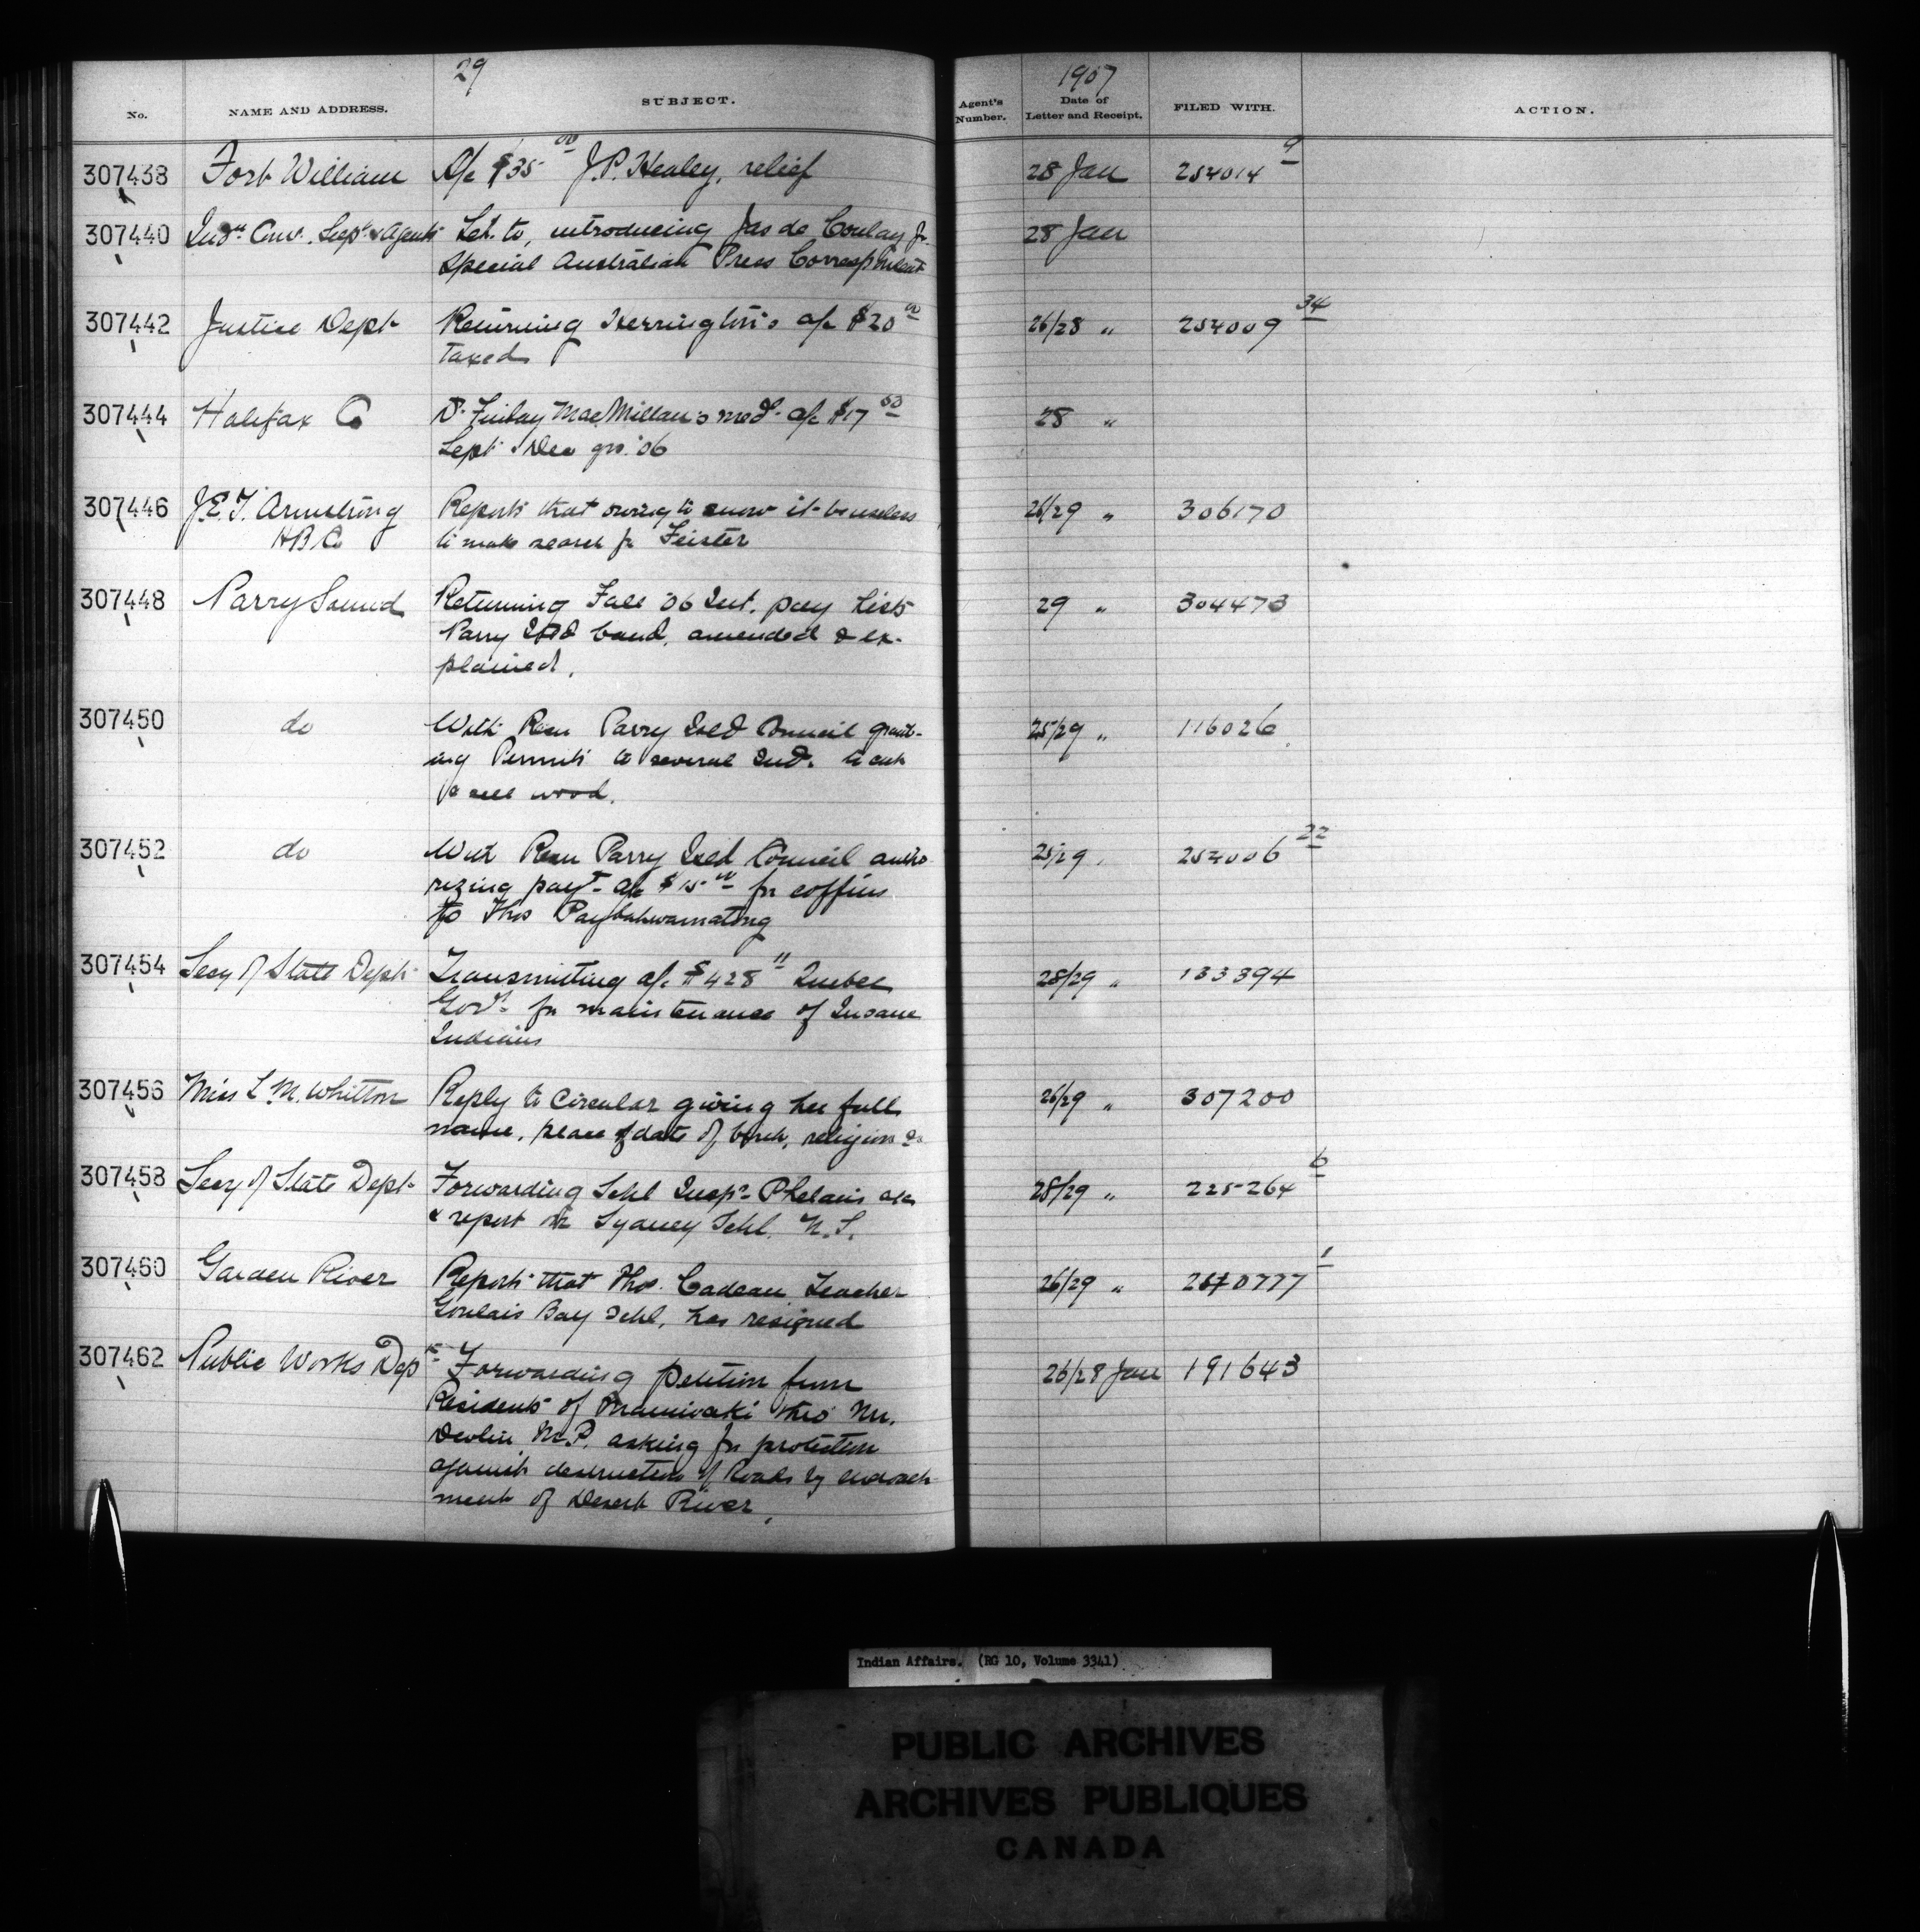 29
1907
No. NAME AND ADDRESS. SUBJECT. Agent's Number. Date of Letter and Receipt. FILED WITH. ACTION.
307438 Fort William A/c $35 00 J.P. Healey, relief 28 Jan 254014 9
307440 Indn Com. Supt & Agents Let. to, introducing Jas de Jr. 28 Jan
Special Australian Press Correspondent
307442 Justice Dept Returning Herrington's a/c $20 00 26/28 " 254009 34
taxed
307444 Halifax Co Dr Finlay MacMillan's med. a/c $17 28 "
Sept & Dec qrs '06
307446 J.E.T. Armstrong Reports that owing to snow it be useless 26/29 " 306170
H B Co to make search for Feister
307448 Parry Sound Returning Fall '06 Int. pay lists 29 " 304473
Parry Isld band, amended & ex-
plained.
307450 do With Resn Parry Isld Council grant- 25/29 " 116026
ing Permits to several Inds. to cut
& sell wood.
307452 do With Resn Parry Isld Council autho 25/29 254006 22
rizing payt a/c $15 00 for coffins
to Thos Paybahwamatong
307454 Secy of State Dept Transmitting a/c $428 11 Quebec 28/29 " 133394
Govt for maintenance of Insane
Indians
307456 Miss L. M. Whitton Reply to Circular giving her full 26/29 " 307200
name, place & date of birth, religion &c
307458 Secy of State Dept Forwarding Schl Inspr Phelan's a/c 28/29 " 225264 6
& report on Sydney Schl. N.S.
307460 Garden River Reports that Thos. Cadeau Teacher 26/29 " 1
Goulais Bay Schl, has resigned
307462 Public Works Dept Forwarding petition from 26/28 Jan 191643
Residents of Maniwaki thro' Mr.
Devlin M.P. asking for protection
against destruction of Roads by encroach
ment of Desert River.
Indian Affairs. (RG 10, Volume 3341)
PUBLIC ARCHIVES
ARCHIVES PUBLIQUES
CANADA